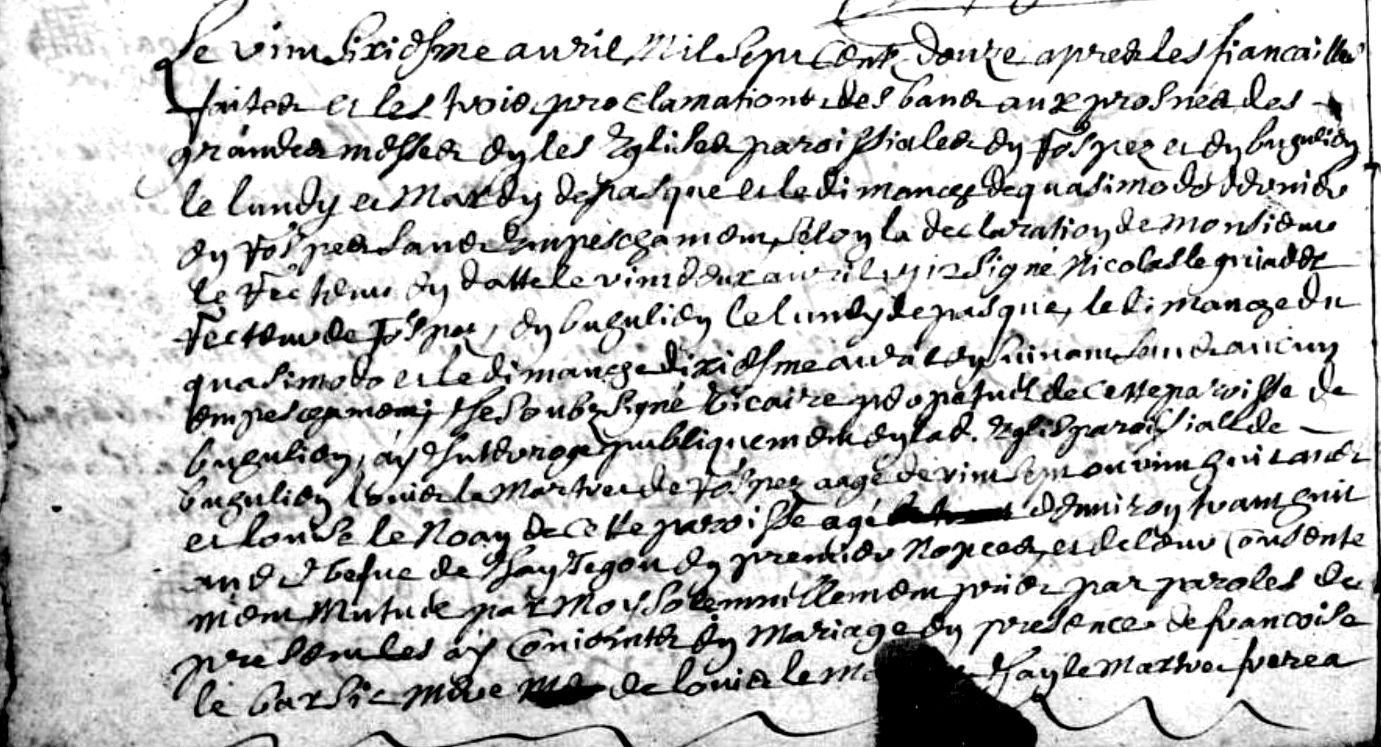 Le vint sixiesme auril Mil Sept Cent douze apres les fiancailles
faites et les trois proclamations des bans aux prosnes des
grandes messes en les Eglises paroissiales en Rospez et en buguelien
le lundy et Mardy de pasque et le dimanche de quasimodo dernier
en Rospez sans Empeschement, selon la declaration de Monsieur
le Recteur en datte le vint deux auril 1712 signé Nicolas le
Recteur de Rospez, en buguelien le lundy de pasque, le dimanche du
quasimodo et le dimanche dixiesme suivant sans aucun
empeschement, Je soubsigné vicaire perpetuel de cette paroisse de
buguelien, ay Interrogé publiquement en lad. Eglise paroissialle de
buguelien Louis le Martret de Rospez aagé de vint sept ou vint huit ans
et louise le Noan de cette paroisse agé d'environ trant huit
ans vefue de Jan en premier Nopces, et de leur Consente
ment Mutuel par Moy solemnillement pris par paroles de
presentes les ay Conioints en Mariage en presence de francoise
le barsic Mere de louis le Jan le Martret freres